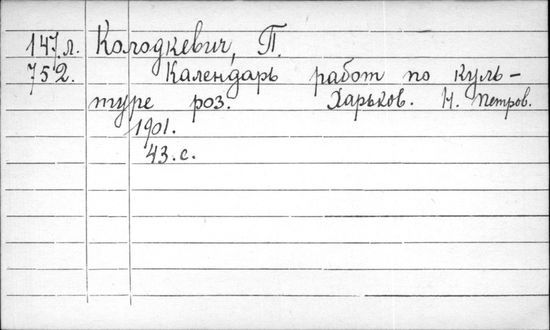 147.л. Колодкевич, П.
752. Календарь работ по куль-
туре роз. Харьков. Н. Петров.
1901.
43.с.